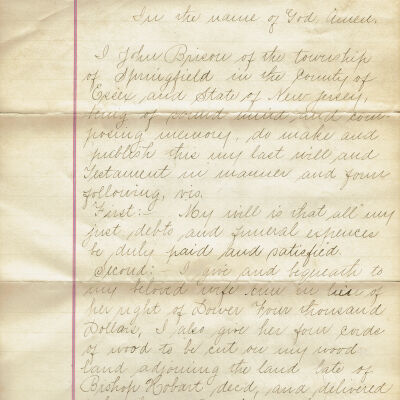 In the name of God Amen.
I John Briscoe of the township
of Springfield in the County of
Essex and State of New Jersey,
being of sound mind and com-
posing memory, do make and
publish this my last will and
Testament in manner and form
following, vis.
First:- My will is that all my
just debts and funeral expences
be duly paid and satisfied.
Second:- I give and bequeath to
my beloved wife in lieu of
her right of Dower Four thousand
Dollars, I also give her four cords
of wood to be cut on my wood
land adjoining the land late of
Bishop Hobart decd, and delivered